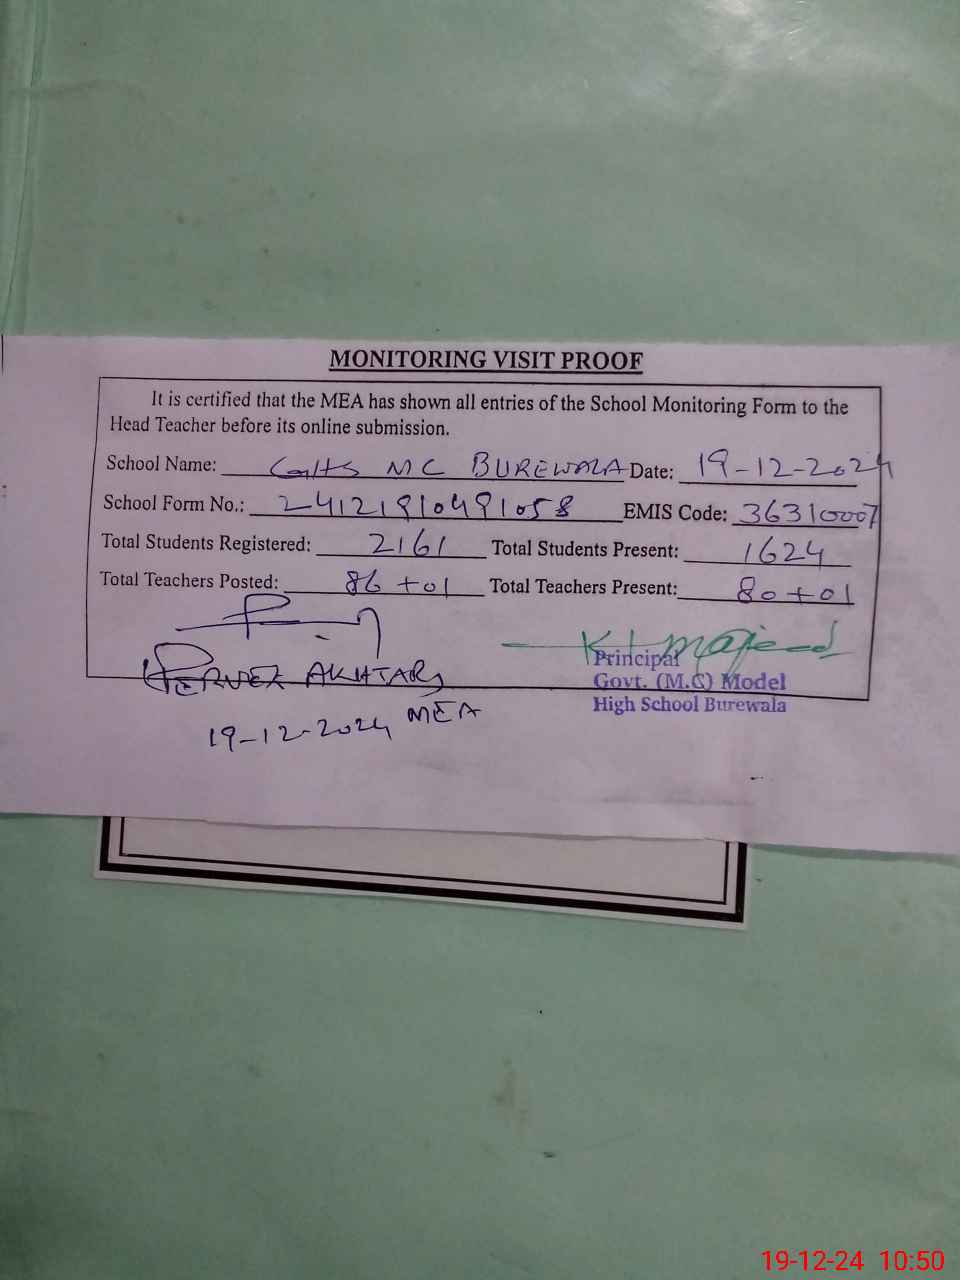 MONITORING VISIT PROOF
It is certified that the MEA has shown all entries of the School Monitoring Form to the
Head Teacher before its online submission.
School Name: GHS MC BUREWALA Date: 19-12-2024
School Form No.: 24121910491058 EMIS Code: 36310007
Total Students Registered: 2161 Total Students Present: 1624
Total Teachers Posted: 86+01 Total Teachers Present: 80+01
PERVEZ AKHTAR
MEA
19-12-2024
Principal
Govt. (M.C) Model
High School Burewala
19-12-24 10:50